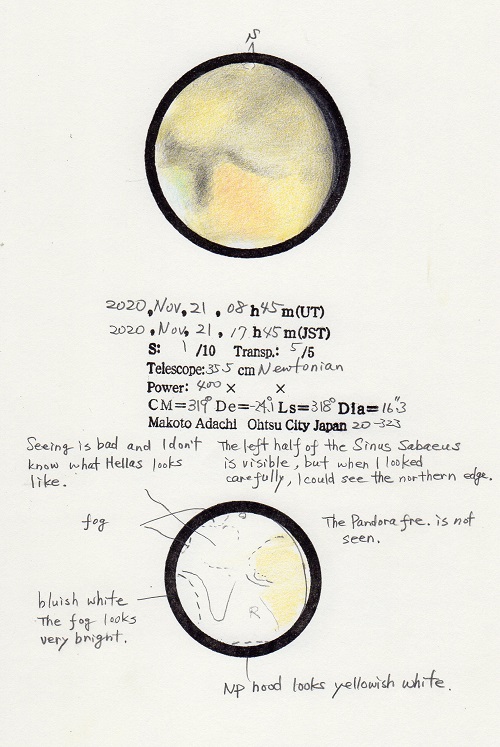 S
2020, Nov, 21, 08 h 45 m (UT)
2020, Nov, 21, 17 h 45 m (JST)
S: 1 /10 Transp.: 5 /5
Telescope: 35.5 cm Newtonian
Power: 400 × ×
CM=319° De=-24.1 Ls=318° Dia=16"3
Makoto Adachi Ohtsu City Japan 20-323
Seeing is bad and I don't
know what Hellas looks
like.
The left half of the Sinus Sabaeus
is visible, but when I looked
carefully, I could see the northern edge.
fog
The Pandora fre. is not
seen.
bluish white
The fog looks
very bright.
R
NP hood looks yellowish white.